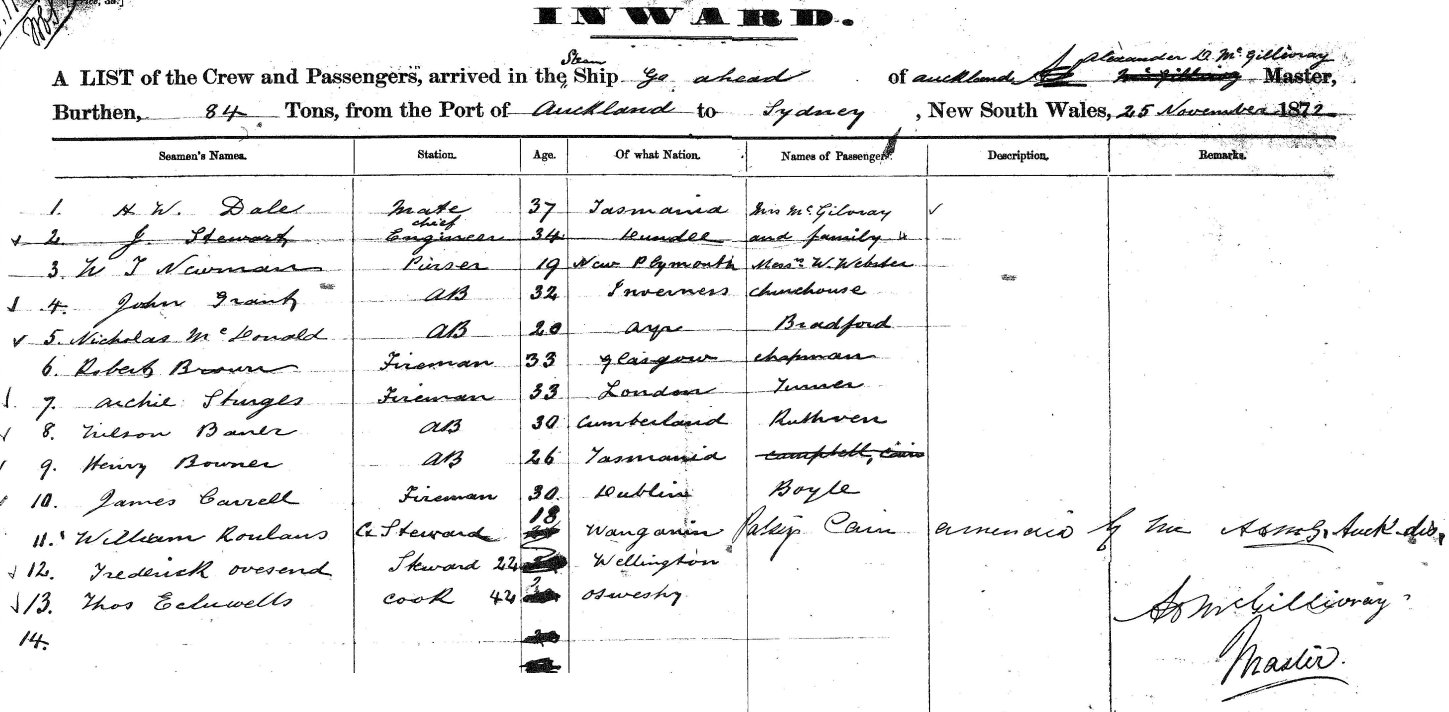 INWARD.
Steam
Alexander D. McGillivray
A LIST of the Crew and Passengers, arrived in the Ship Go ahead of Auckland McGillivray Master,
Burthen, 84 Tons, from the Port of Auckland to Sydney, New South Wales, 25 November 1872
Seamen's Names. Station. Age. Of what Nation. Names of Passengers. Description. Remarks.
1. H W. Dale Mate 37 Tasmania Mrs McGilvray
2 J. Stewart Chief Engineer 34 Dundee and family 4
3. W T Newman Purser 19 New Plymouth Messrs W. Webster
4. John Grant AB 32 Inverness Churchouse
5. Nicholas McDonald AB 20 Ayr Bradford
6. Robert Brown Fireman 33 Glasgow Chapman
7. Archie Sturges Fireman 33 London Turner
8. Nelson Baner AB 30 Cumberland Ruthven
9. Henry Bowner AB 26 Tasmania Campbell, Cain
10. James Carrell Fireman 30 Dublin Boyle
11. William Roulans Steward 18 Wanganui Cain by me
12. Frederick Ovesend Steward 22 Wellington
13. Thos Cook 42 Oswestry
A D McGillivray
14.
Master.